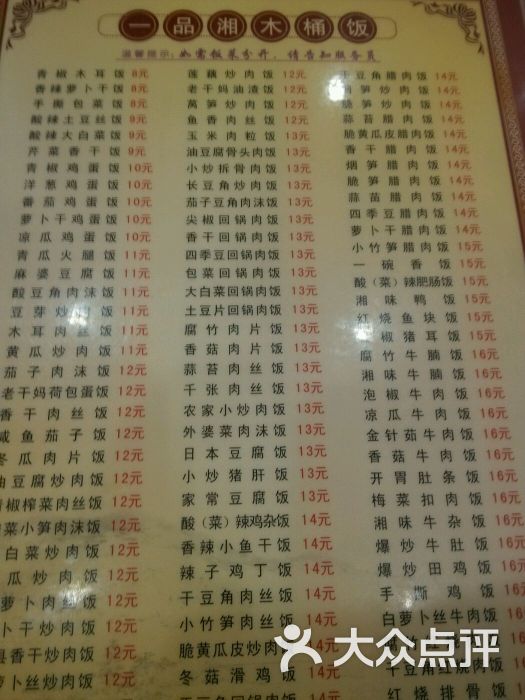 一品湘木桶饭
温馨提示：如需饭菜分开，请告知服务员
青椒木耳饭 8元
香辣萝卜干饭 8元
手撕包菜饭 8元
酸辣土豆丝饭 9元
酸辣大白菜饭 9元
芹菜香干饭 9元
青椒鸡蛋饭 10元
洋葱鸡蛋饭 10元
番茄鸡蛋饭 10元
萝卜干鸡蛋饭 10元
凉瓜鸡蛋饭 10元
青瓜火腿饭 11元
麻婆豆腐饭 11元
酸豆角肉沫饭 11元
豆芽炒肉饭 11元
木耳肉丝饭 11元
黄瓜炒肉饭 11元
茄子肉沫饭 12元
老干妈荷包蛋饭 12元
香干肉丝饭 12元
咸鱼茄子饭 12元
冬瓜肉片饭 12元
油豆腐炒肉饭 12元
青椒榨菜肉丝饭 12元
菜小笋肉沫饭 12元
白菜炒肉饭 12元
瓜炒肉饭 12元
萝卜肉丝饭 12元
卜干炒肉饭 12元
香干炒肉饭 12元
豆炒肉饭 12元
莲藕炒肉饭 12元
老干妈油渣饭 12元
莴笋炒肉饭 12元
鱼香肉丝饭 12元
玉米肉粒饭 13元
油豆腐骨头肉饭 13元
小炒拆骨肉饭 13元
长豆角炒肉饭 13元
茄子豆角肉沫饭 13元
尖椒回锅肉饭 13元
香干回锅肉饭 13元
四季豆回锅肉饭 13元
包菜回锅肉饭 13元
大白菜回锅肉饭 13元
土豆片回锅肉饭 13元
腐竹肉片饭 13元
香菇肉片饭 13元
蒜苔肉丝饭 13元
千张肉丝饭 13元
农家小炒肉饭 13元
外婆菜肉沫饭 13元
日本豆腐饭 13元
小炒猪肝饭 13元
家常豆腐饭 13元
酸（菜）辣鸡杂饭 14元
香辣小鱼干饭 14元
辣子鸡丁饭 14元
干豆角肉丝饭 14元
小竹笋肉丝饭 14元
脆黄瓜皮炒肉饭
冬菇滑鸡饭
干豆角腊肉饭 14元
笋炒腊肉饭 14元
脆笋炒肉饭 14元
蒜苔腊肉饭 14元
脆黄瓜皮腊肉饭 14元
香干腊肉饭 14元
烟笋腊肉饭 14元
脆笋腊肉饭 14元
蒜苗腊肉饭 14元
四季豆腊肉饭 14元
萝卜干腊肉饭 14元
小竹笋腊肉饭 15元
一碗香饭 15元
酸（菜）辣肥肠饭 15元
湘味鸭饭 15元
红烧鱼块饭 15元
椒猪耳饭 15元
腐竹牛腩饭 16元
湘味牛腩饭 16元
泡椒牛肉饭 16元
凉瓜牛肉饭 16元
金针菇牛肉饭 16元
香菇牛肉饭 16元
开胃肚条饭 16元
梅菜扣肉饭 16元
湘味牛杂饭 16元
爆炒牛肚饭 16元
爆炒田鸡饭 16元
手撕鸡饭 16元
白萝卜丝牛肉饭 16元
干豆角红烧肉饭
红烧排骨饭
大众点评